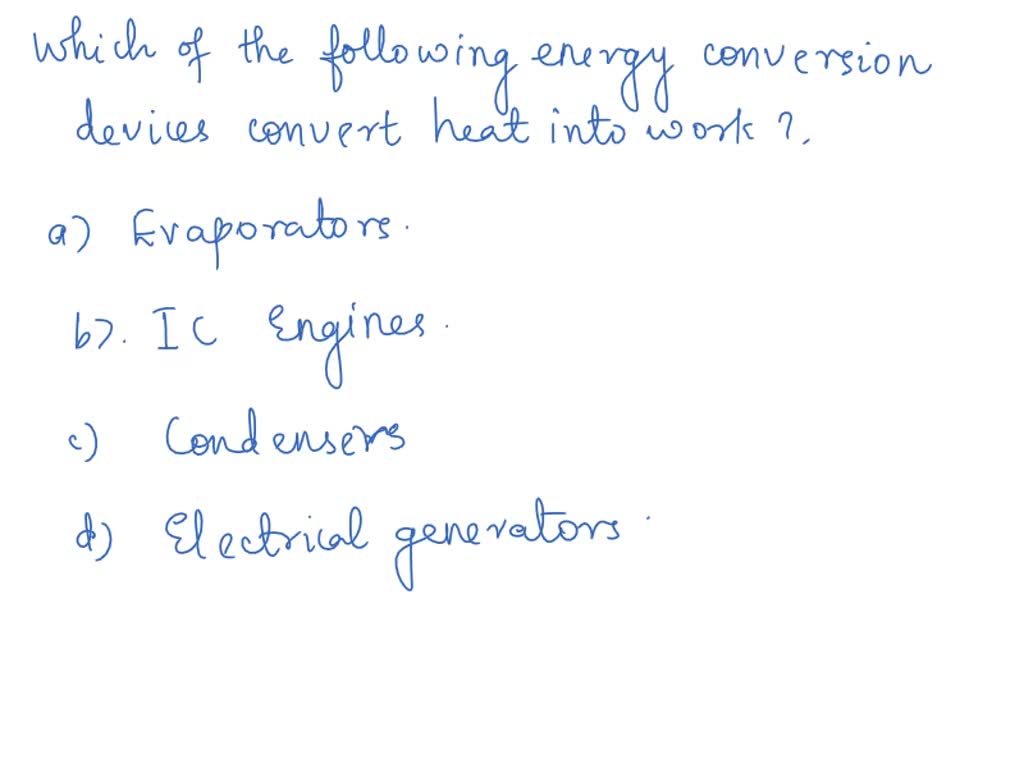 Which of the following energy conversion
devices convert heat into work ?.
a) Evaporators.
b). IC Engines.
c) Condensers
d) Electrical generators.